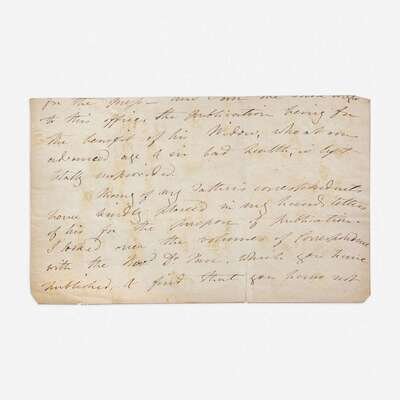 for the Press — and I am the more anxious
to this office, the Publication being for
the benefit of his Widow, who at an
advanced age & in bad health, is left
totally unprovided.
Many of my Father's correspondents
have kindly placed in my hands, letters
of his for the purpose of publication.
I looked over the volumes of Correspondence
with the Revd Dr which you have
published, & find that you have not